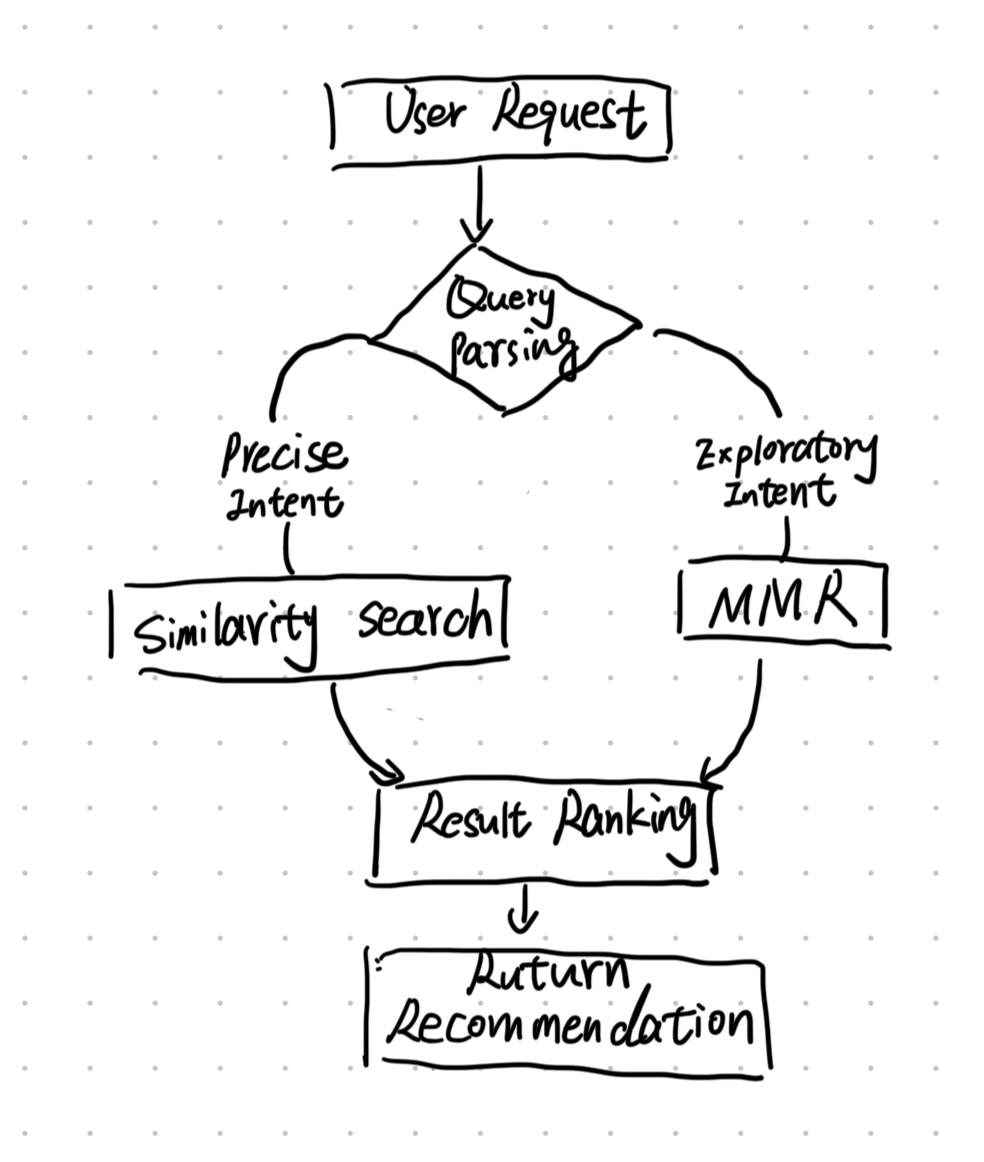 User Request
Query
Parsing
Precise
Intent
Exploratory
Intent
Similarity search
MMR
Result Ranking
Ruturn
Recommendation